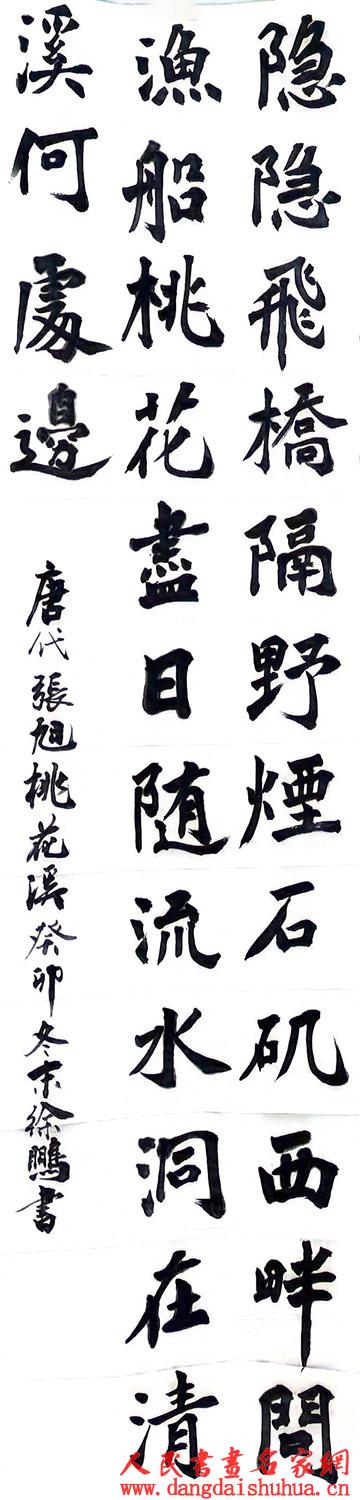 隐隐飛橋隔野煙石矶西畔問
漁船桃花盡日随流水洞在清
溪何處邊
唐代張旭桃花溪癸卯冬末徐鵬書
人民書畫名家網
www.dangdaishuhua.cn